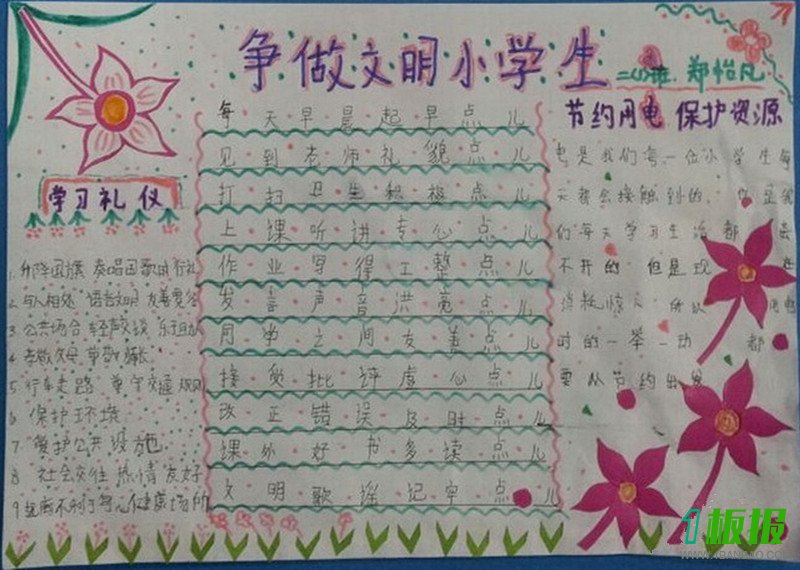 争做文明小学生
二(1)班 郑怡凡
学习礼仪
1 升降国旗 奏唱国歌时行礼
2 与人相处 语言文明 友善宽容
3 公共场合 轻声交谈
4 孝敬父母 尊敬师长
5 行车走路 遵守交通规则
6 保护环境
7 爱护公共设施
8 社会交往 热情友好
9
每天早晨起早点儿
见到老师礼貌点儿
打扫卫生积极点儿
上课听讲专心点儿
作业写得工整点儿
发言声音洪亮点儿
同学之间友善点儿
接受批评虚心点儿
改正错误及时点儿
课外好书多读点儿
文明歌谣记牢点儿
节约用电 保护资源
电是我们每一位小学生每
天都会接触到的. 也是我
们每天学习生活都 离
不开的 但是现
消耗惊人 所以 用电
时的一举一动 都
要从节约出发
1板报
WWW.1BANBAO.COM